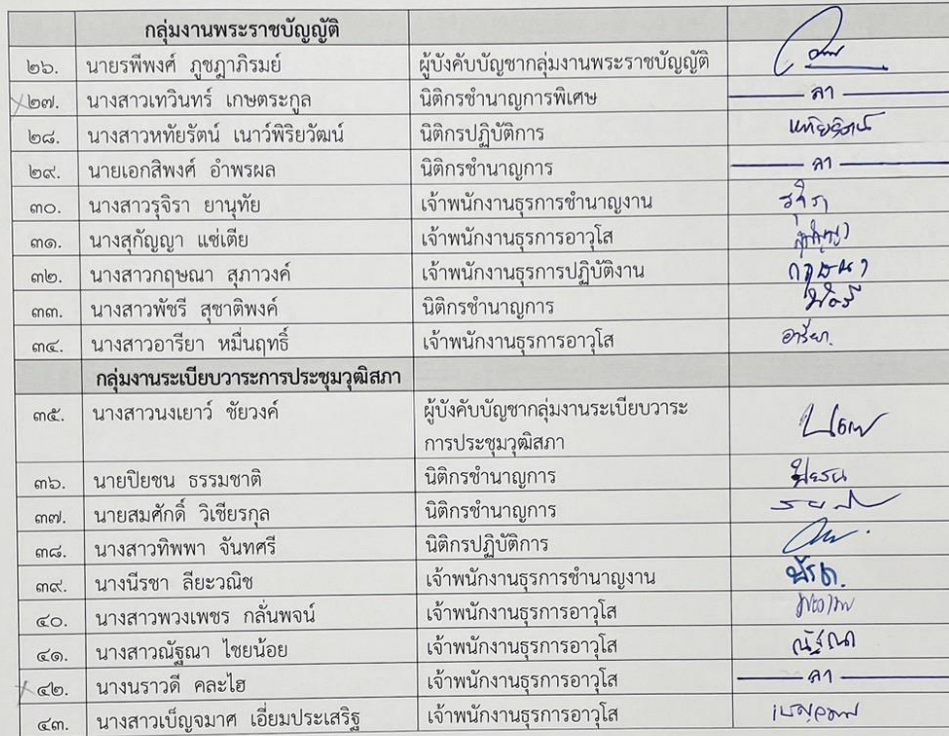 กลุ่มงานพระราชบัญญัติ
๒๖. นายรพีพงศ์ ภูชฎาภิรมย์ ผู้บังคับบัญชากลุ่มงานพระราชบัญญัติ
๒๗. นางสาวเทวินทร์ เกษตระกูล นิติกรชำนาญการพิเศษ ลา
๒๘. นางสาวหทัยรัตน์ เนาว์พิริยวัฒน์ นิติกรปฏิบัติการ หทัยรัตน์
๒๙. นายเอกสิพงศ์ อำพรผล นิติกรชำนาญการ ลา
๓๐. นางสาวรุจิรา ยานุทัย เจ้าพนักงานธุรการชำนาญงาน รุจิรา
๓๑. นางสุกัญญา แซ่เตีย เจ้าพนักงานธุรการอาวุโส สุกัญญา
๓๒. นางสาวกฤษณา สุภาวงค์ เจ้าพนักงานธุรการปฏิบัติงาน กฤษณา
๓๓. นางสาวพัชรี สุชาติพงค์ นิติกรชำนาญการ พัชรี
๓๔. นางสาวอารียา หมื่นฤทธิ์ เจ้าพนักงานธุรการอาวุโส อารียา
กลุ่มงานระเบียบวาระการประชุมวุฒิสภา
๓๕. นางสาวนงเยาว์ ชัยวงค์ ผู้บังคับบัญชากลุ่มงานระเบียบวาระ
การประชุมวุฒิสภา
๓๖. นายปิยชน ธรรมชาติ นิติกรชำนาญการ ปิยชน
๓๗. นายสมศักดิ์ วิเชียรกุล นิติกรชำนาญการ
๓๘. นางสาวทิพพา จันทศรี นิติกรปฏิบัติการ
๓๙. นางนีรชา ลียะวณิช เจ้าพนักงานธุรการชำนาญงาน
๔๐. นางสาวพวงเพชร กลั่นพจน์ เจ้าพนักงานธุรการอาวุโส
๔๑. นางสาวณัฐณา ไชยน้อย เจ้าพนักงานธุรการอาวุโส ณัฐณา
๔๒. นางนราวดี คละไฮ เจ้าพนักงานธุรการอาวุโส ลา
๔๓. นางสาวเบ็ญจมาศ เอี่ยมประเสริฐ เจ้าพนักงานธุรการอาวุโส